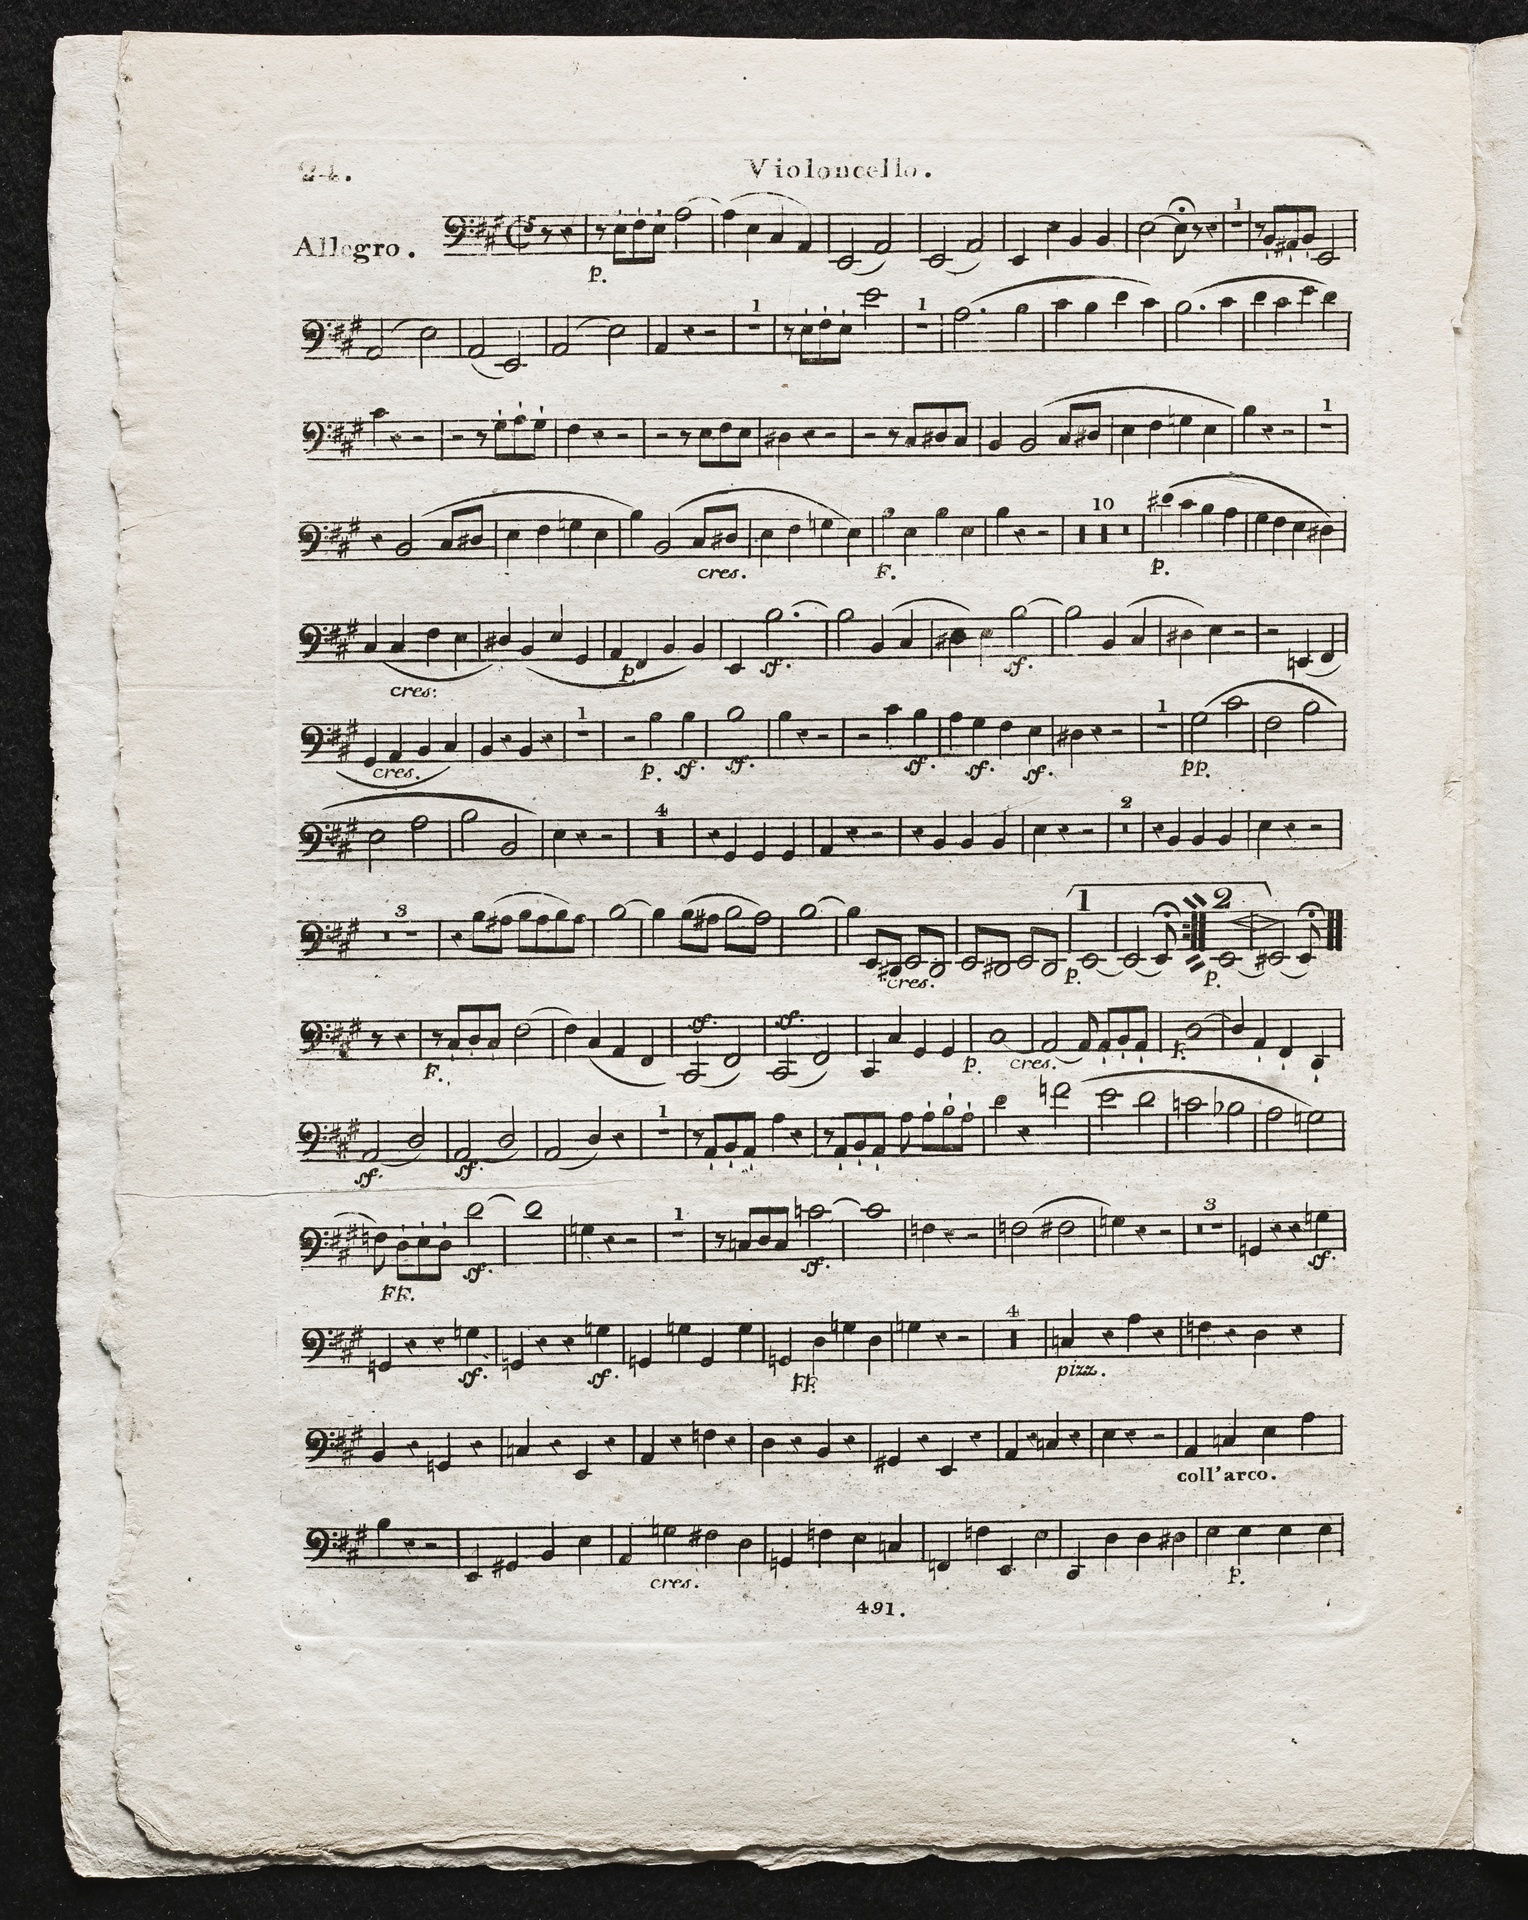 24.
Violoncello.
Allegro.
1
p.
1 1
1
10
cres. F. p.
p. sf. sf.
cres:
1 1
cres. p. sf. sf. sf. sf. sf. pp.
4 2
3 1 2
cres. p. p.
sf. sf.
F. p. cres. F.
1
sf. sf.
1 3
sf. sf. sf.
FF.
4
sf. sf. FF. pizz.
coll'arco.
cres. p.
491.